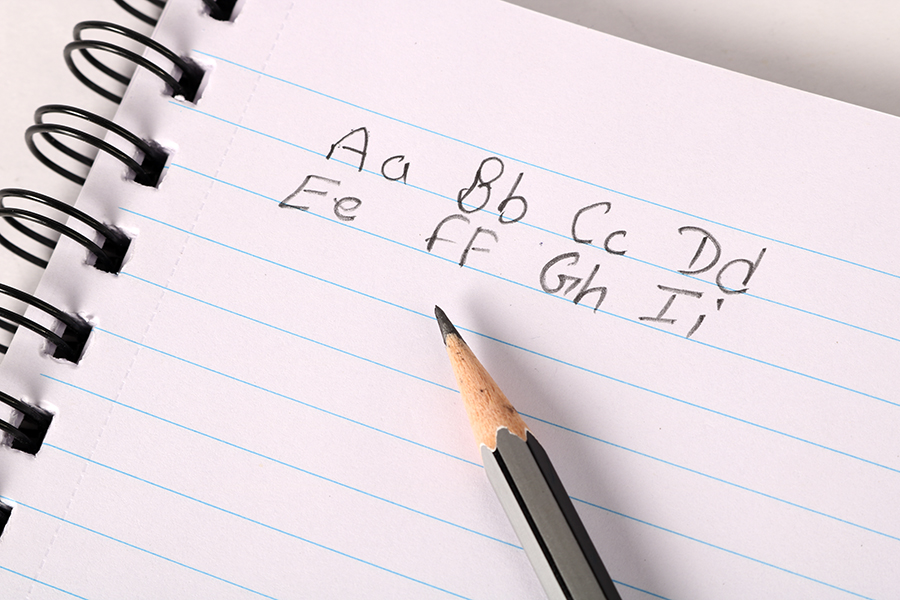 Aa Bb Cc Dd
Ee fF Gh Ii